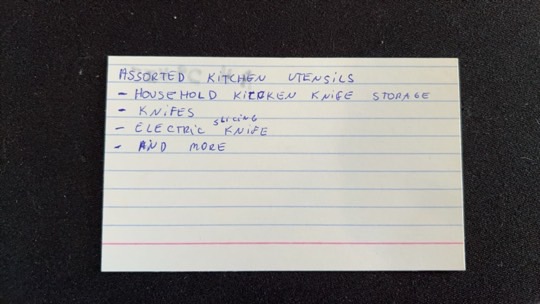 ASSORTED KITCHEN UTENSILS
- HOUSEHOLD KITCKEN KNIFE STORAGE
- KNIFES
- ELECTRIC SLICING KNIFE
- AND MORE